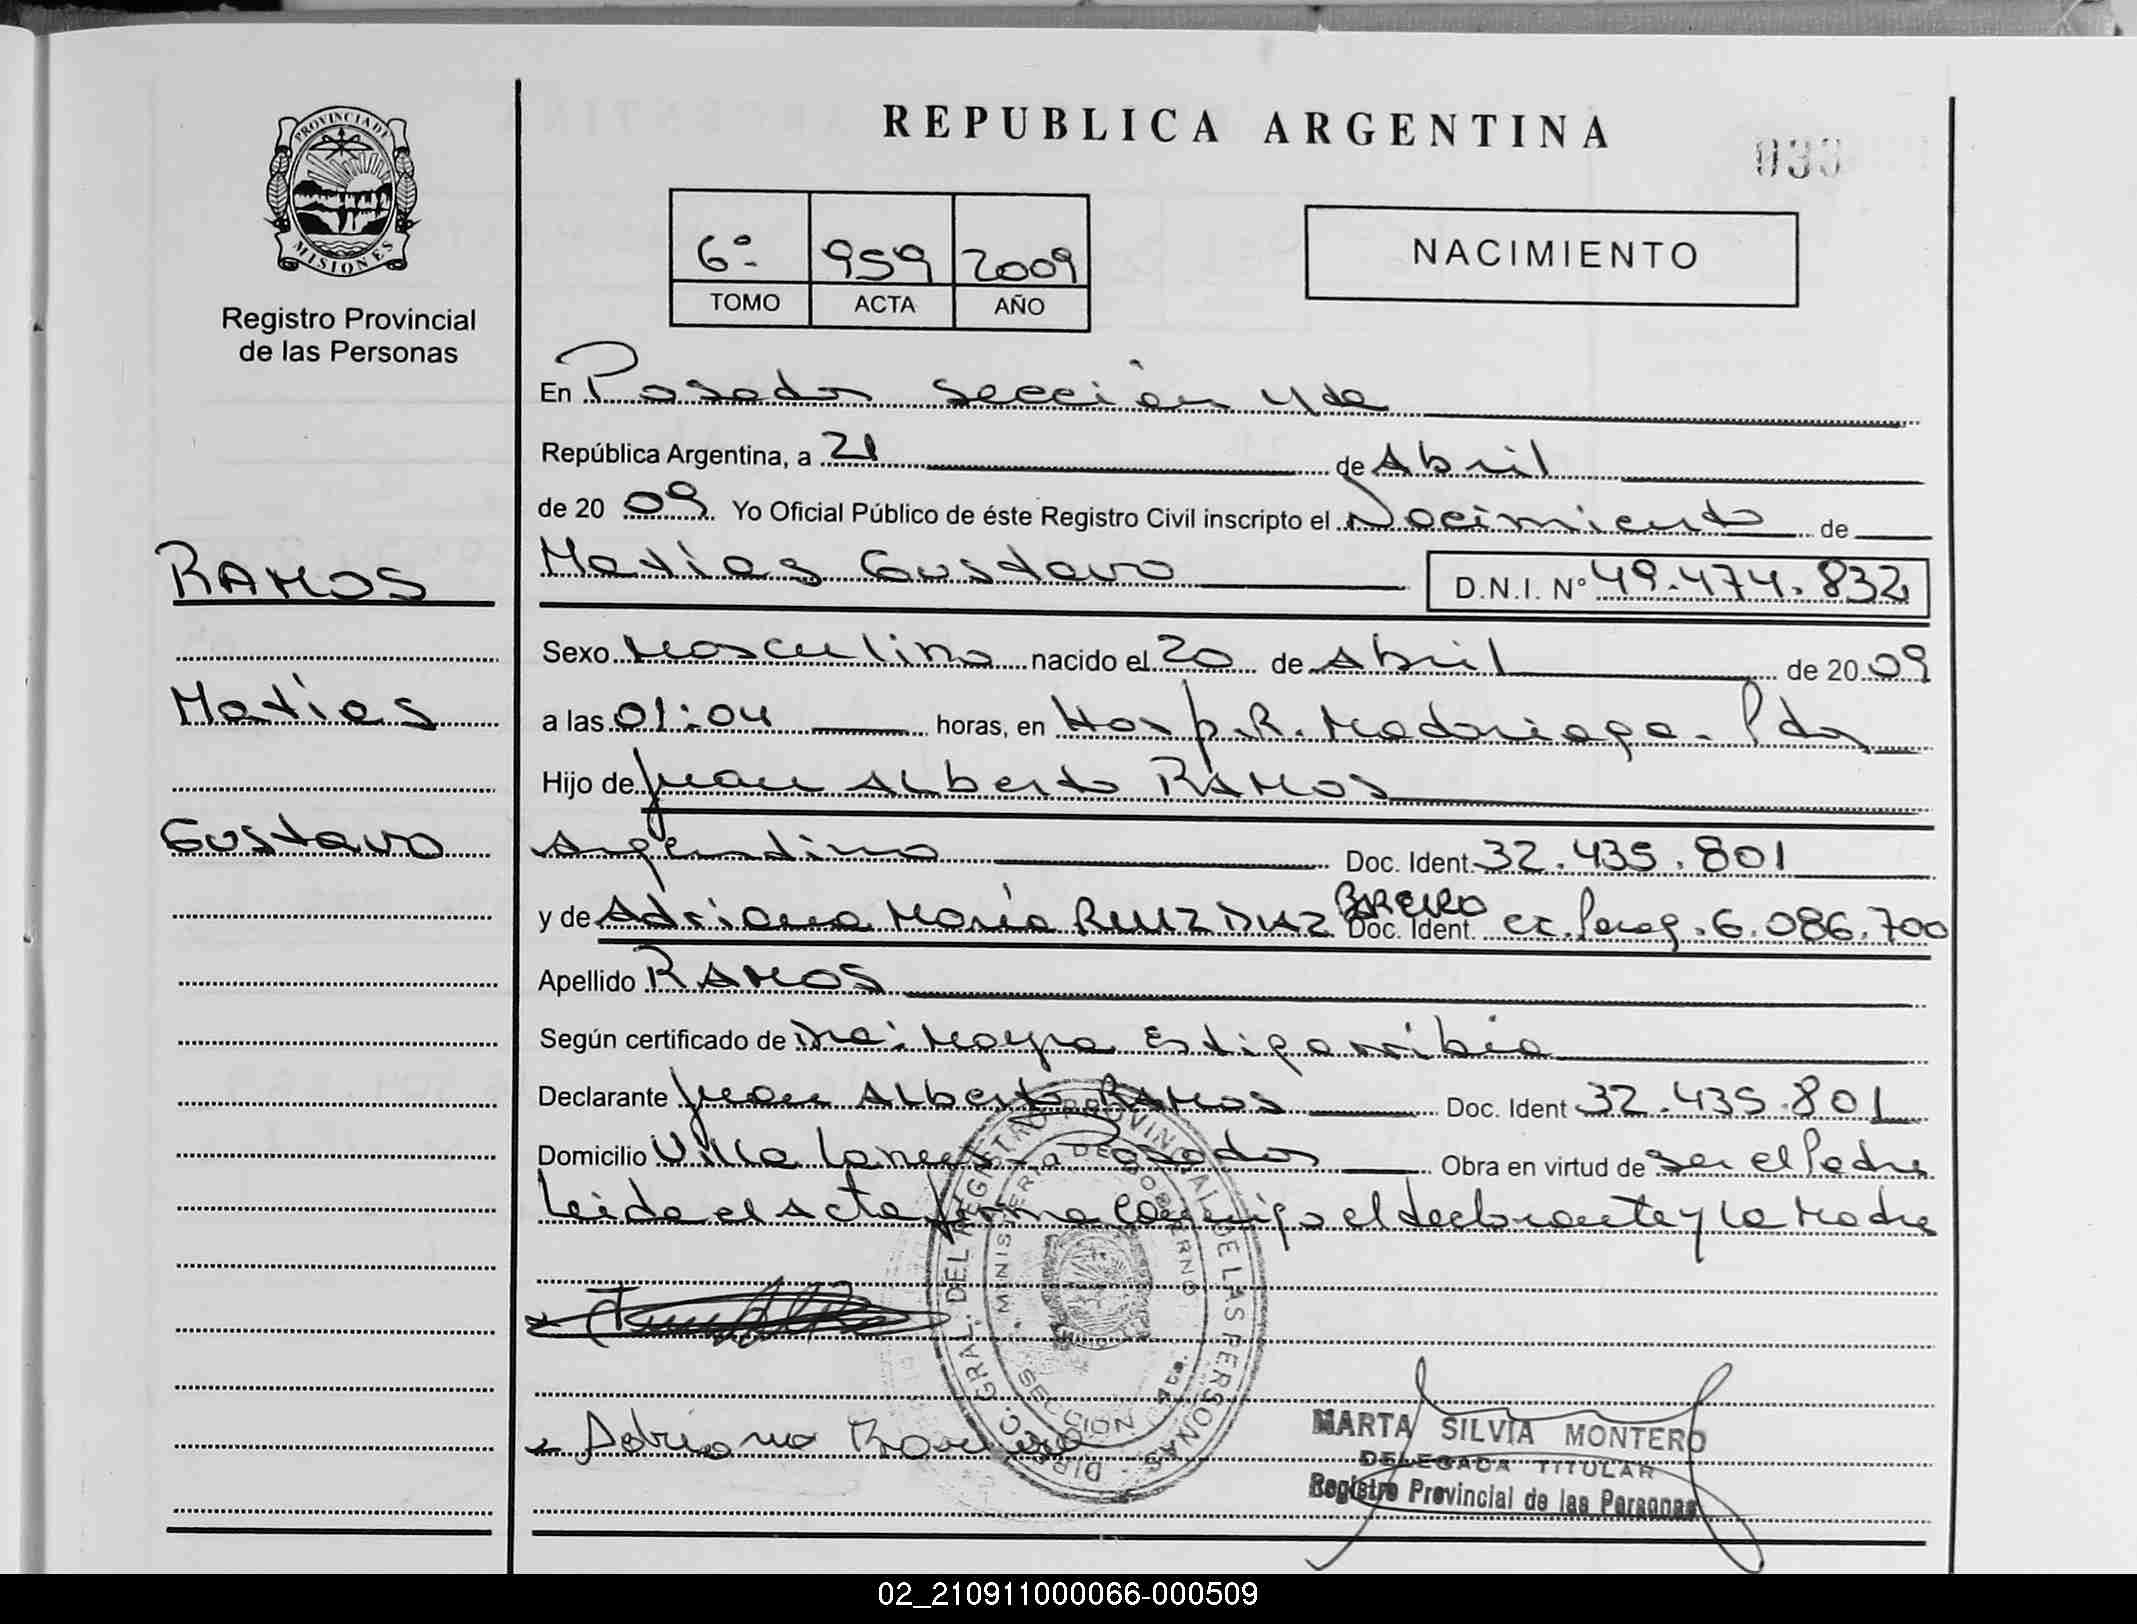 REPUBLICA ARGENTINA
PROVINCIA DE
MISIONES
Registro Provincial
de las Personas
6º 959 2009
TOMO ACTA AÑO
NACIMIENTO
En Posadas sección 4ta
República Argentina, a 21 de Abril
de 2009. Yo Oficial Público de éste Registro Civil inscripto el Nacimiento de
RAMOS
Matías Gustavo D.N.I. Nº 49.474.832
Sexo Masculino nacido el 20 de Abril de 2009
Matías
a las 01:04 horas, en Hosp. R. Madariaga - Pdas
Hijo de Juan Alberto RAMOS
Gustavo
Argentino Doc. Ident. 32.435.801
y de Adriana María RUIZ DIAZ BAREIRO Doc. Ident. CI. Parag. 6.086.700
Apellido RAMOS
Según certificado de Dra: Mayra Estigarribia
Declarante Juan Alberto RAMOS Doc. Ident 32.435.801
Domicilio Villa Posadas Obra en virtud de ser el Padre
Leida el Acta firma conmigo el declarante y la Madre
DIREC. GRAL. DEL REGISTRO PROVINCIAL DE LAS PERSONAS
MINISTERIO DE GOBIERNO
SECCION 4ta.
Adriana
MARTA SILVIA MONTERO
DELEGADA TITULAR
Registro Provincial de las Personas
02_210911000066-000509